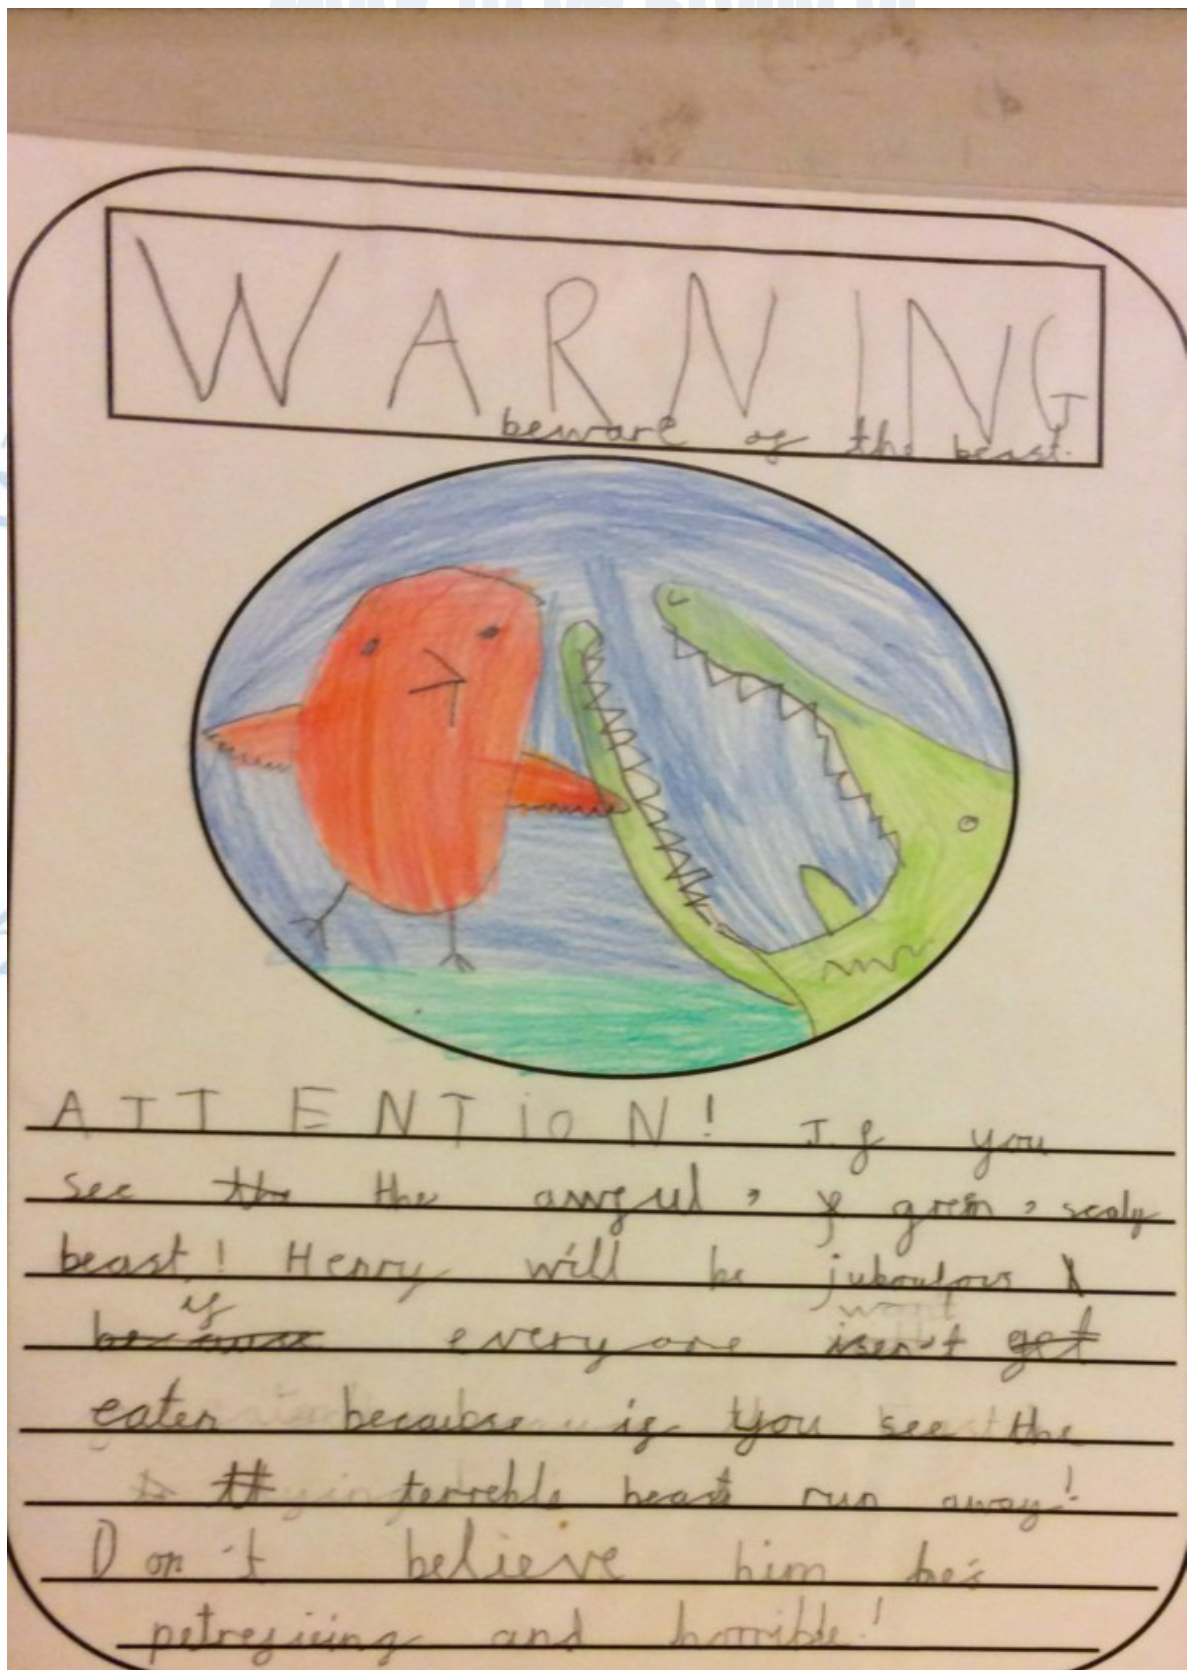 WARNING
beware of the beast.
ATTENTiON! If you
see the the awful, green, scaly
beast! Henry will be
if everyone
eaten because if you see the
terreble beast run away!
Don't believe him he's
petrefiing and horrible!